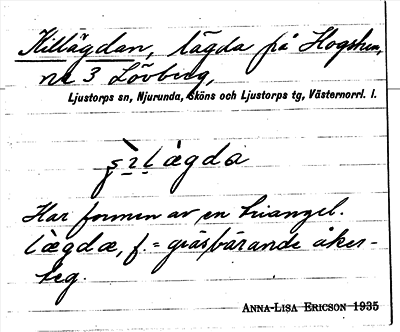 Killägdan, lägda på Hogshem,
nr 3 Lövberg,
Ljustorps sn, Njurunda, Sköns och Ljustorps tg, Västernorrl. l.
lægda
Har formen av en triangel.
lægdæ, f. = gräsbärande åker-
teg.
ANNA-LISA ERICSON 1935